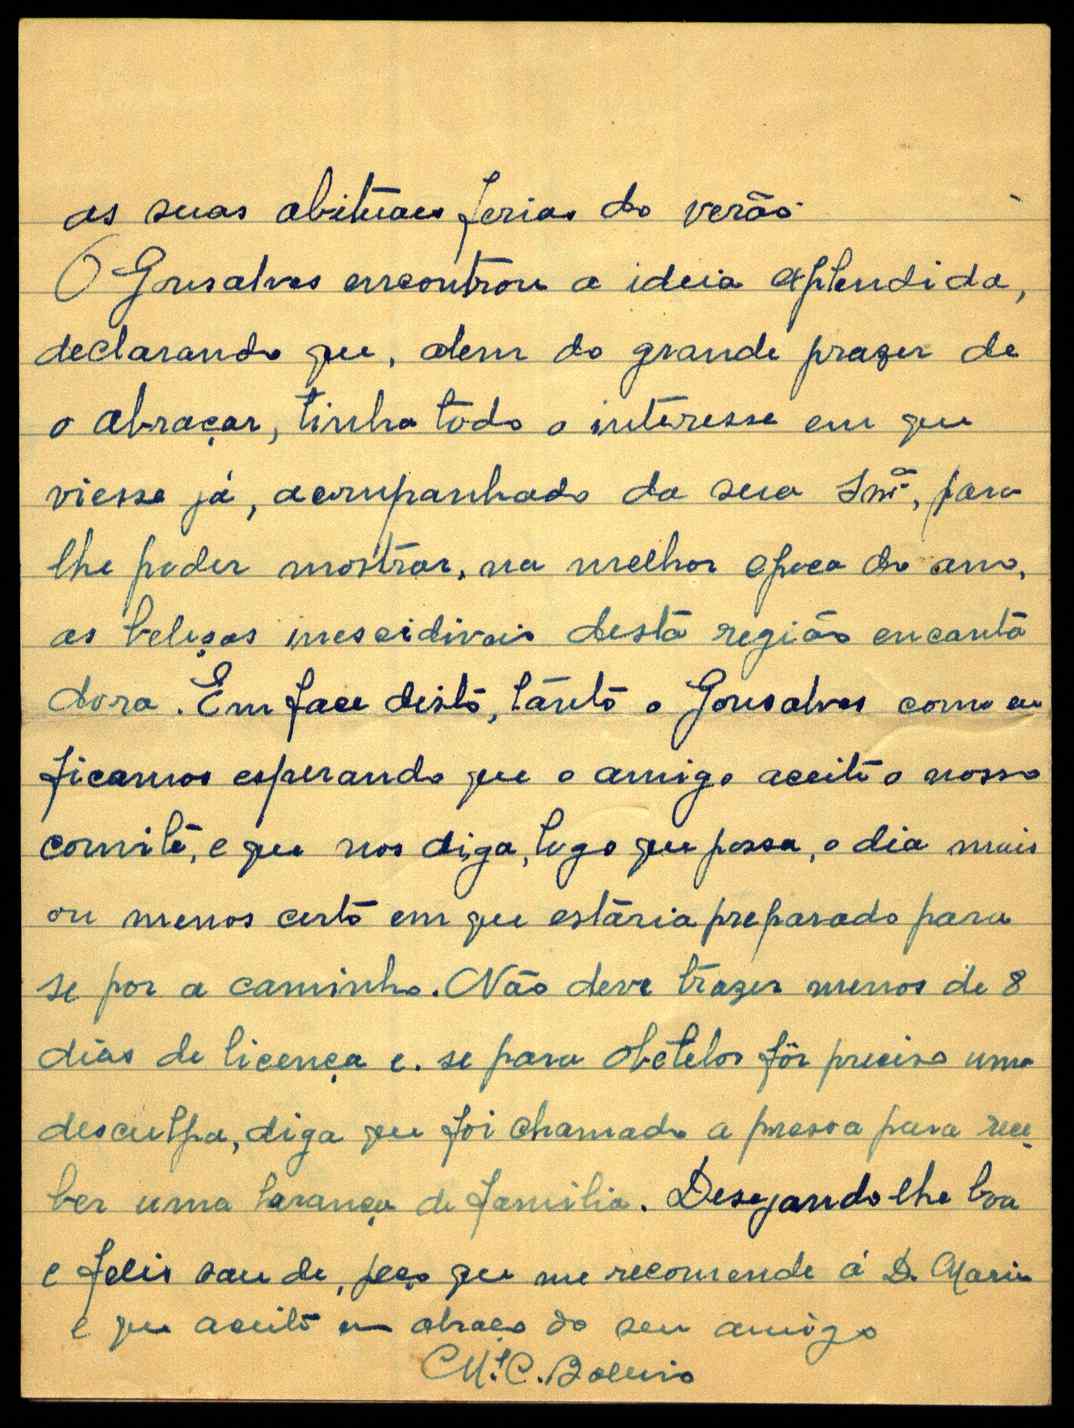 as suas abituaes ferias do verão
O Gonsalves encontrou a ideia esplendida,
declarando que, alem do grande prazer de
o abraçar, tinha todo o interesse em que
viesse já, acompanhado da sua Snrª, para
lhe poder mostrar, na melhor epoca do ano,
as belezas inescidivais desta região encanta
dora. Em face disto, tanto o Gonsalves como eu
ficamos esperando que o amigo aceite o nosso
convite, e que nos diga, logo que possa, o dia mais
ou menos certo em que estaria preparado para
se por a caminho. Não deve trazer menos de 8
dias de licença e. se para obetelos fôr preciso uma
desculpa, diga que foi chamado a pressa para rece
ber uma harança de familia. Desejando lhe boa
e felis saude, peço que me recomende á D. Maria
e que aceite um abraço do seu amigo